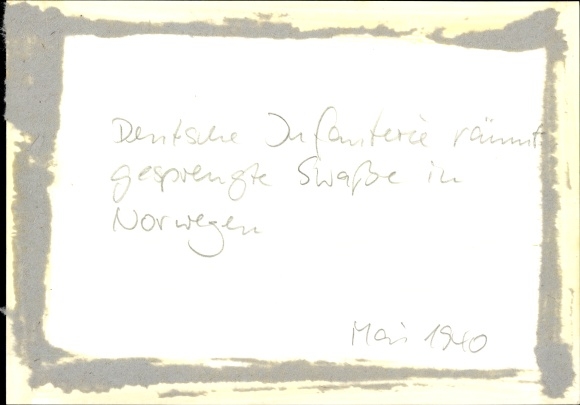 Deutsche Infanterie räumt
gesprengte Straße in
Norwegen
Mai 1940